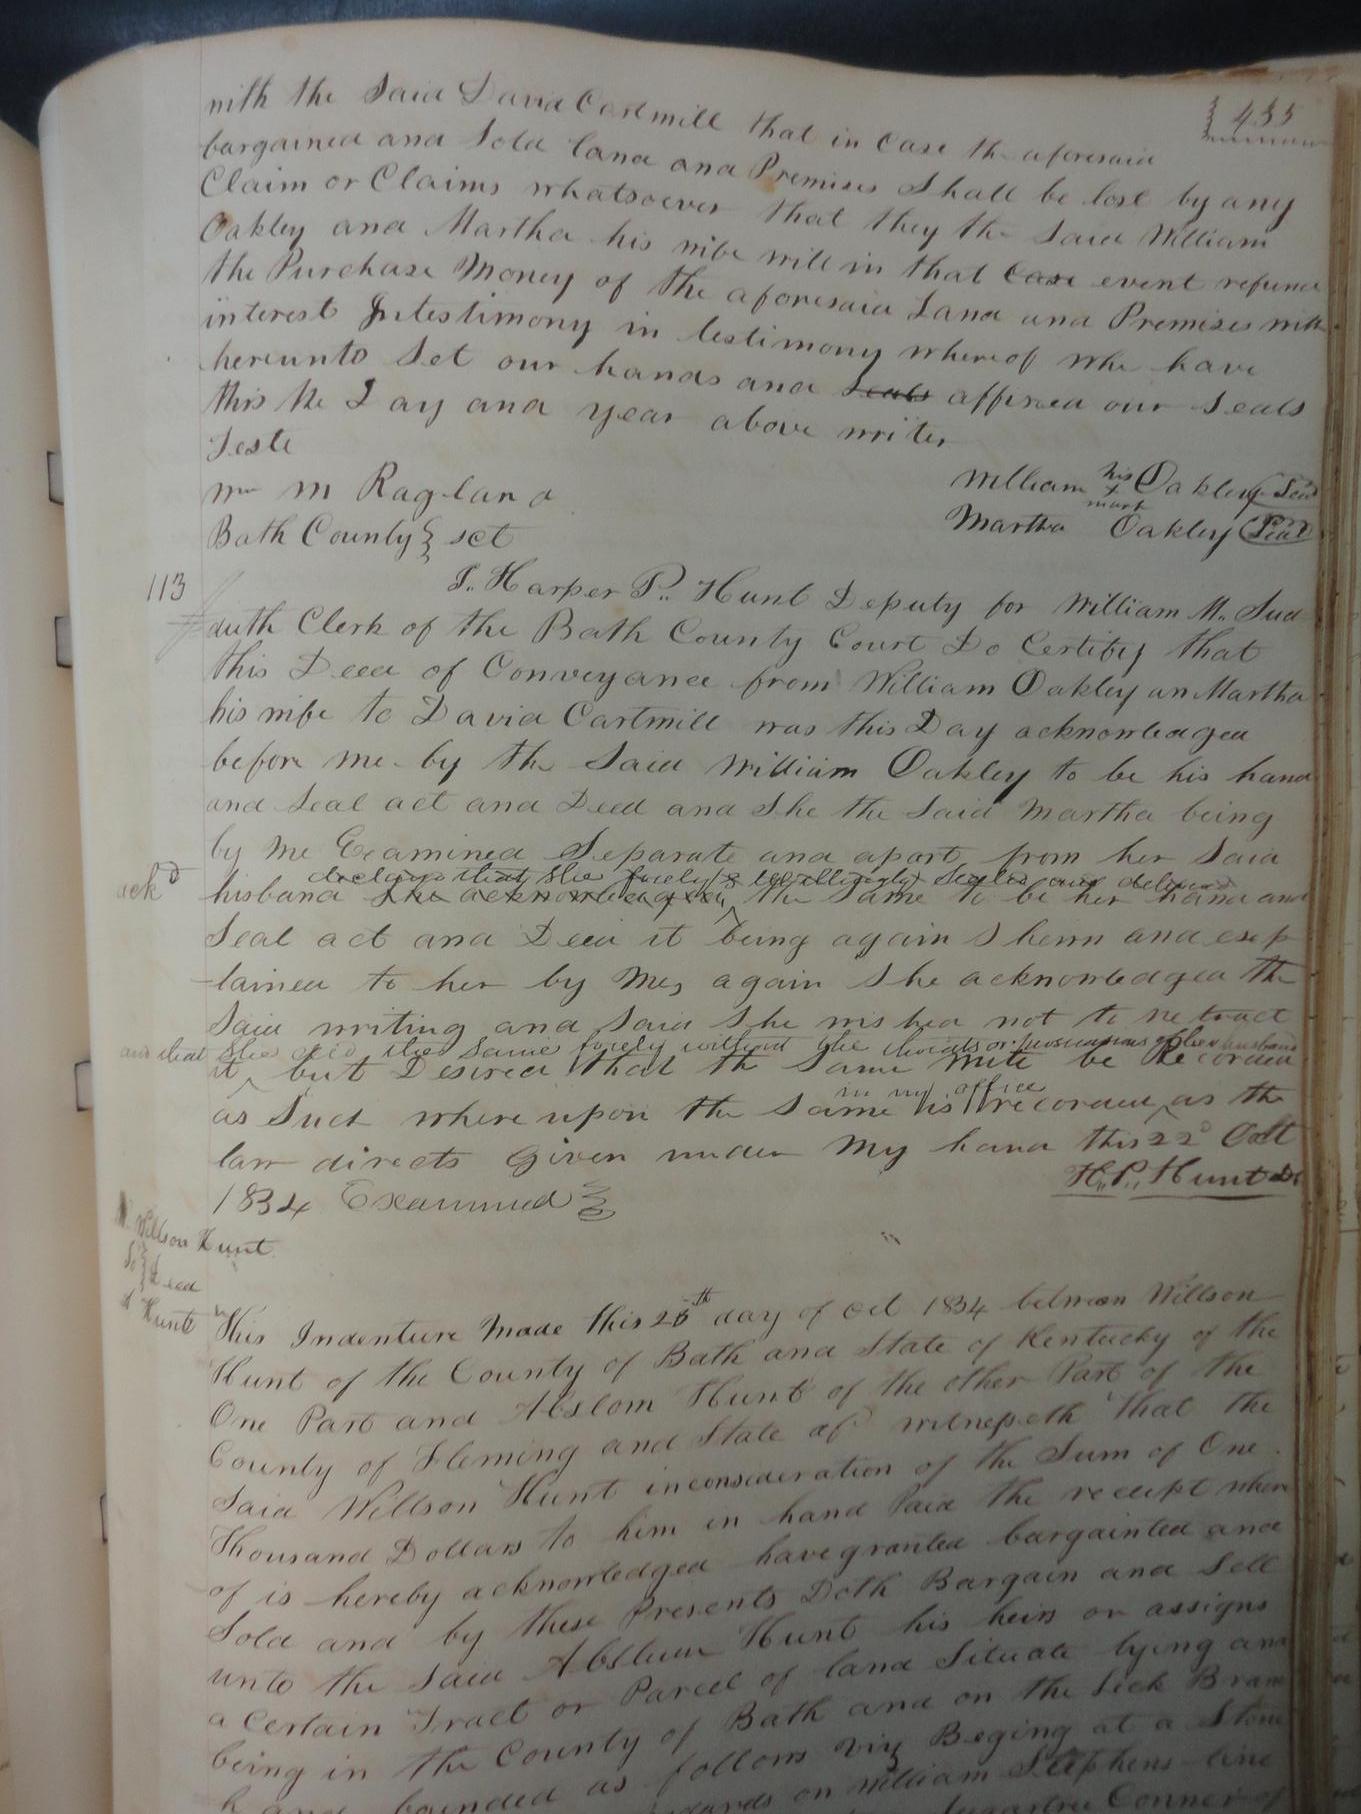 455
with the Said David Cartmill that in Case the aforesaid
bargained and Sold land and Premises Shall be lost by any
Claim or Claims whatsoever that they the Said William
Oakley and Martha his wife will in that Case event refund
the Purchase Money of the aforesaid Land and Premises with
interest Intestimony in testimony whereof whe have
hereunto Set our hands and Seals affixed our Seals
this the Day and year above writen
Teste
Wm M Ragland
William his x mark Oakley Seal
Martha Oakley Seal
Bath County } sct
113
I. Harper P. Hunt Deputy for William M. Sud
duth Clerk of the Bath County Court Do Certify that
this Deed of Conveyance from William Oakley an Martha
his wife to David Cartmill was this Day acknowledged
before me by the Said William Oakley to be his hand
and Seal act and Deed and She the Said Martha being
by me Examined Separate and apart from her Said
declared that she freely & willingly Sealed and delivered
ackd
husband She acknowledged the Same to be her hand and
Seal act and Deed it being again Shewn and exp
lained to her by Me, again She acknowledged the
Said writing and Said She wished not to retract
and that She did the same freely without the threats or persuasions of her husband
it, but Desired that the Same mite be Recorded
in my office
as Such where upon the Same is recorded as the
law directs Given under My hand this 22d Oct
1834 Examined
H.. P.. Hunt DC
Willson Hunt
To } Deed
A Hunt
This Indenture Made this 25th day of Oct 1834 between Willson
Hunt of the County of Bath and State of Kentucky of the
One Part and Abslom Hunt of the other Part of the
County of Fleming and State of witnesseth that the
Said Willson Hunt inconsideration of the Sum of One
Thousand Dollars to him in hand Paid the receipt where
of is hereby acknowledged have granted bargainted and
Sold and by these Presents Doth Bargain and Sell
unto the Said Abslum Hunt his heirs or assigns
a Certain Tract or Parcel of land Situate lying and
being in the County of Bath and on the Lick Bran
h and bounded as follows viz Beging at a Stone
on William Stephens line
Conner of